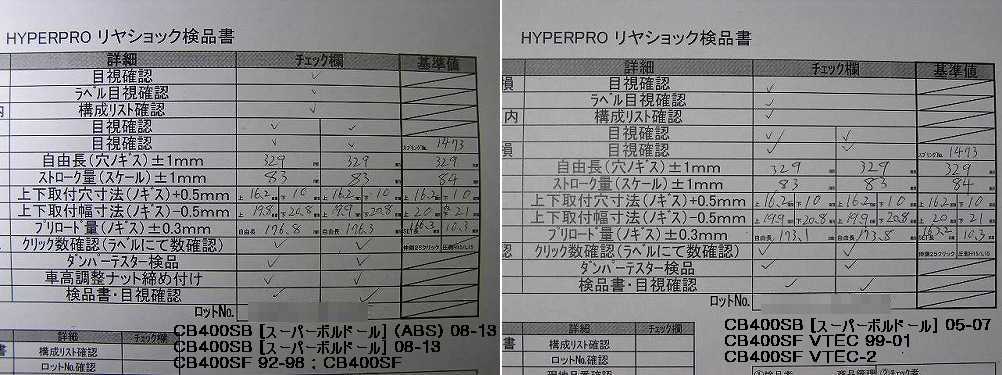 HYPERPRO リヤショック検品書
詳細 チェック欄 基準値
目視確認
ラベル目視確認
内 構成リスト確認
目視確認
目視確認 1473
自由長(穴ノギス)±1mm 329 329 329
ストローク量(スケール)±1mm 83 83 84
上下取付穴寸法(ノギス)+0.5mm 上 16.2 下 10 上 16.2 下 10 上 16.2 下 10
上下取付幅寸法(ノギス)-0.5mm 上 19.8 下 20.8 上 19.9 下 20.8 上 20 下 21
プリロード量(ノギス)±0.3mm 自由長 176.8 自由長 176.3 10.3
クリック数確認(ラベルにて数確認)
ダンパーテスター検品
車高調整ナット締め付け
検品書・目視確認
ロットNo.
詳細 チェック欄
書 構成リスト確認
ロットNo.確認
CB400SB [スーパーボルドール] (ABS) 08-13
CB400SB [スーパーボルドール] 08-13
CB400SF 92-98 : CB400SF
HYPERPRO リヤショック検品書
詳細 チェック欄 基準値
損 目視確認
ラベル目視確認
内 構成リスト確認
目視確認
損 目視確認 1473
自由長(穴ノギス)±1mm 329 329 329
ストローク量(スケール)±1mm 83 83 84
上下取付穴寸法(ノギス)+0.5mm 上 16.2 下 10 上 16.2 下 10 上 16.2 下 10
上下取付幅寸法(ノギス)-0.5mm 上 19.9 下 20.8 上 19.9 下 20.8 上 20 下 21
プリロード量(ノギス)±0.3mm 自由長 173.1 自由長 173.8 10.3
認 クリック数確認(ラベルにて数確認)
ダンパーテスター検品
検品書・目視確認
ロットNo.
詳細 チェック欄
書 構成リスト確認
ロットNo.確認
CB400SB [スーパーボルドール] 05-07
CB400SF VTEC 99-01
CB400SF VTEC-2